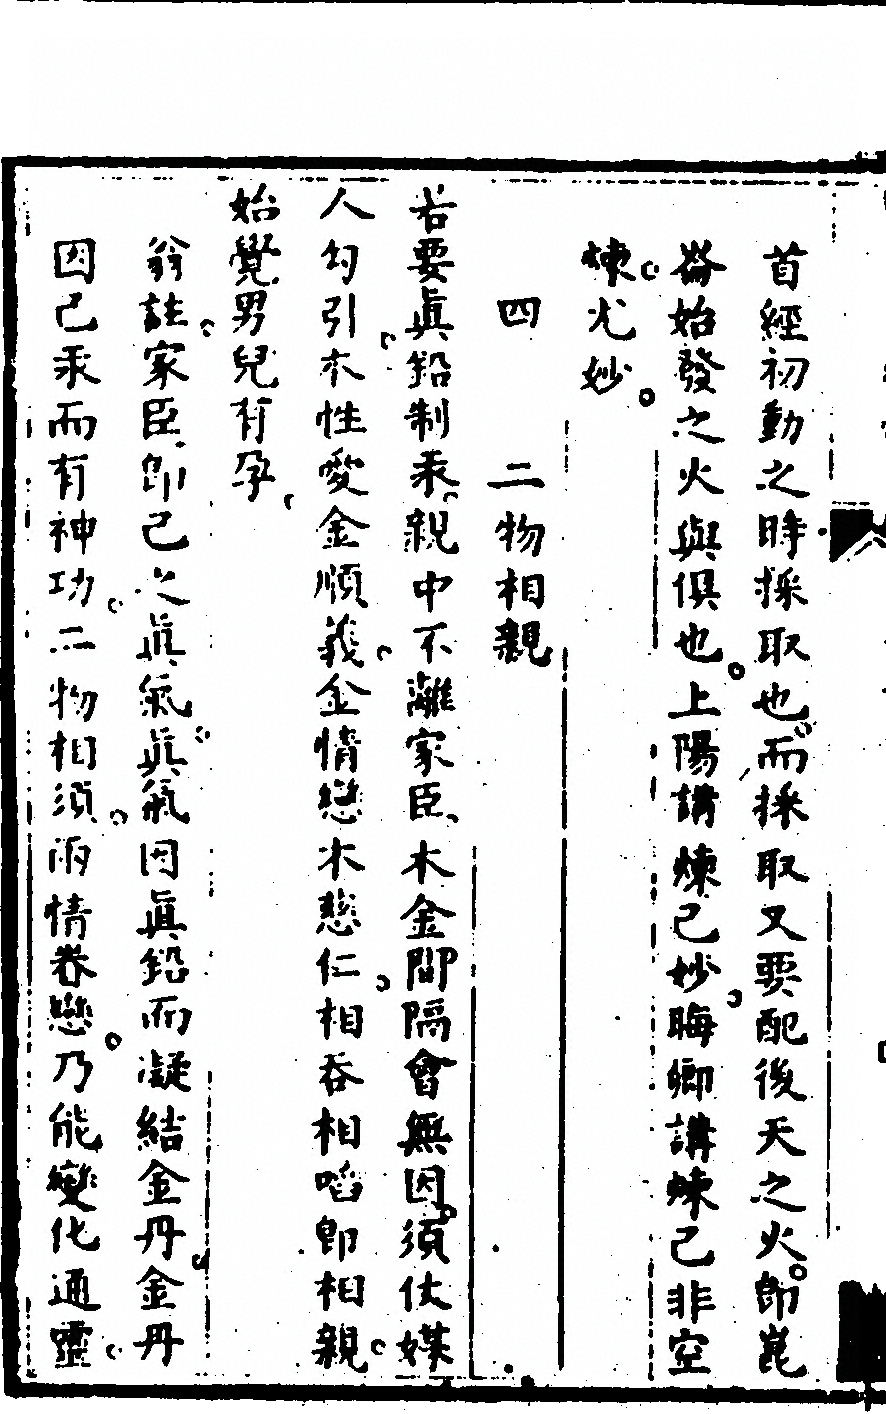 首經初動之時採取也而採取又要配後天之火即崑
崙始發之火與俱也上陽講煉己妙晦卿講煉己非空
煉尤妙
四　二物相親
若要眞鉛制汞親中不離家臣木金間隔會無因須仗媒
人勾引木性愛金順義金情戀木慈仁相吞相啗卽相親
始覺男兒有孕
翁註家臣卽己之眞氣眞氣因眞鉛而凝結金丹金丹
因己汞而有神功二物相須兩情眷戀乃能變化通靈